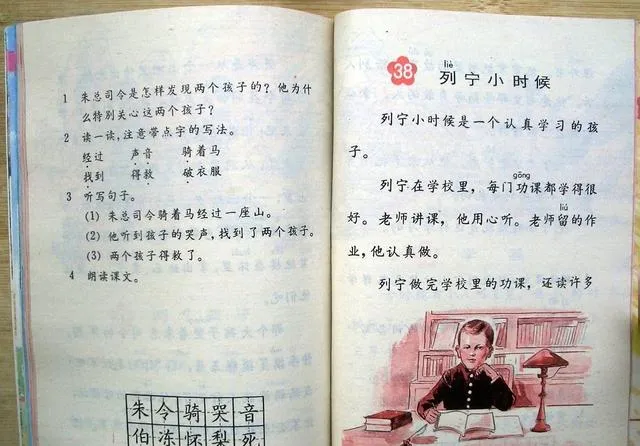 1 朱总司令是怎样发现两个孩子的?他为什
么特别关心这两个孩子?
2 读一读,注意带点字的写法。
经过 声音 骑着马
找到 得救 破衣服
3 听写句子。
(1) 朱总司令骑着马经过一座山。
(2) 他听到孩子的哭声,找到了两个孩子。
(3) 两个孩子得救了。
4 朗读课文。
朱令骑哭音
伯冻怀梨死
38
liè
列宁小时候
列宁小时候是一个认真学习的孩
子。
gōng
列宁在学校里,每门功课都学得很
liú
好。老师讲课,他用心听。老师留的作
业,他认真做。
列宁做完学校里的功课,还读许多